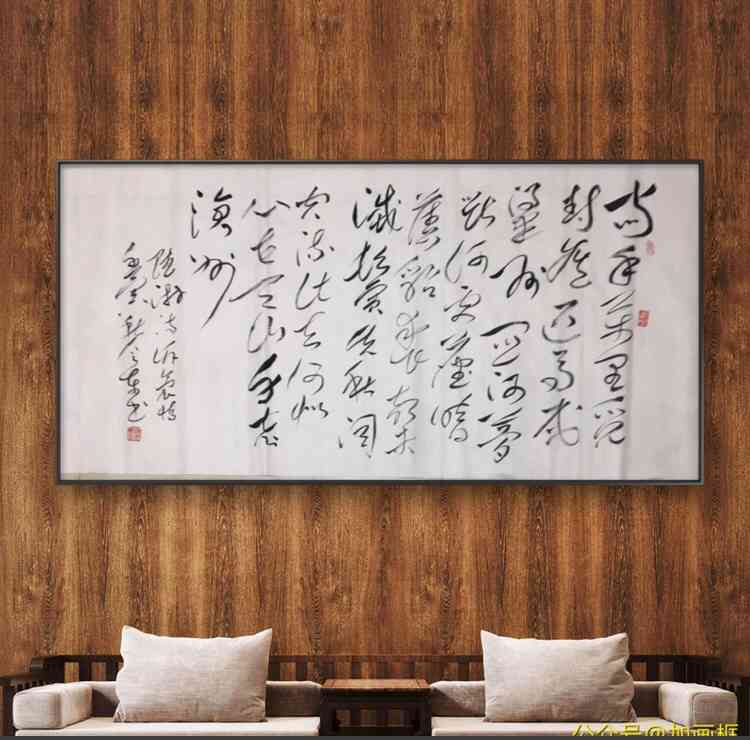 当年万里觅
封侯匹马戍
梁州关河梦
断何处尘暗
旧貂裘胡未
灭鬓先秋泪
空流此生谁料
心在天山身老
沧州
陆游诗诉衷情
公众号@加画框